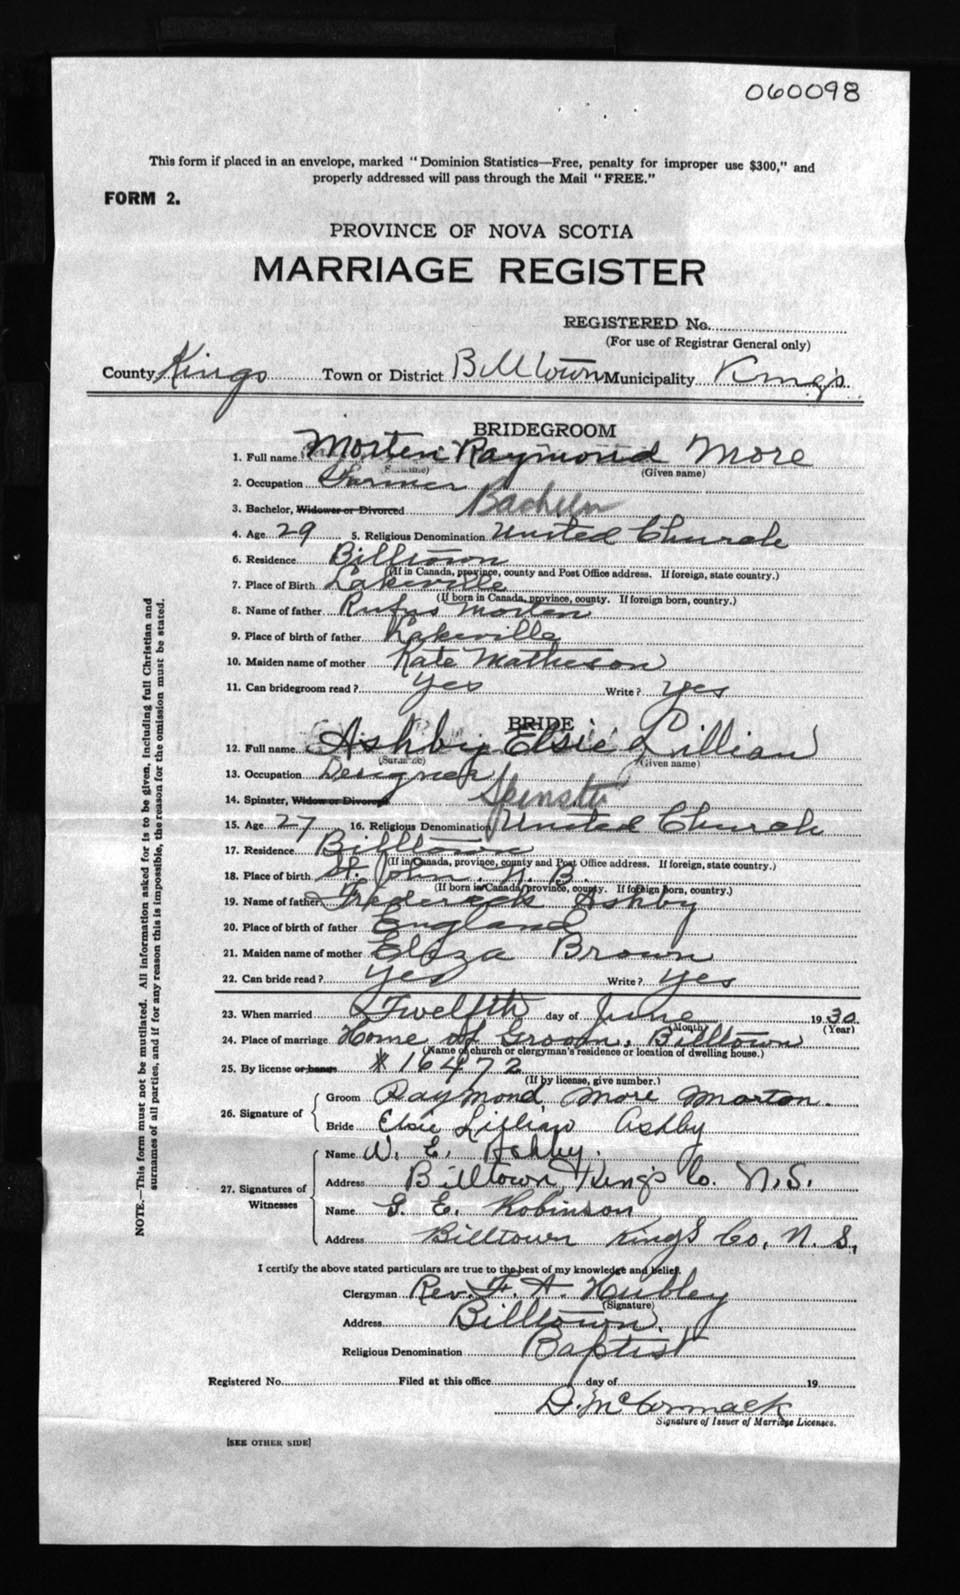 060098
This form if placed in an envelope, marked "Dominion Statistics—Free, penalty for improper use $300," and
properly addressed will pass through the Mail "FREE."
FORM 2.
PROVINCE OF NOVA SCOTIA
MARRIAGE REGISTER
REGISTERED No.
(For use of Registrar General only)
County Kings Town or District Billtown Municipality Kings
BRIDEGROOM
1. Full name Morten Raymond More
(Surname) (Given name)
2. Occupation Farmer
3. Bachelor, Widower or Divorced Bachelor
4. Age 29 5. Religious Denomination United Church
6. Residence Billtown
(If in Canada, province, county and Post Office address. If foreign, state country.)
7. Place of Birth Lakeville
(If born in Canada, province, county. If foreign born, country.)
8. Name of father Rufus Morten
9. Place of birth of father Lakeville
10. Maiden name of mother Kate Matheson
11. Can bridegroom read? Yes Write? Yes
BRIDE
12. Full name Ashby Elsie Lillian
(Surname) (Given name)
13. Occupation Designer
14. Spinster, Widow or Divorced Spinster
15. Age 27 16. Religious Denomination United Church
17. Residence Billtown
(If in Canada, province, county and Post Office address. If foreign, state country.)
18. Place of birth St. John N. B.
(If born in Canada, province, county. If foreign born, country.)
19. Name of father Frederick Ashby
20. Place of birth of father England
21. Maiden name of mother Eliza Brown
22. Can bride read? Yes Write? Yes
23. When married Twelfth day of June 1930
(Month) (Year)
24. Place of marriage Home of Groom, Billtown
(Name of church or clergyman's residence or location of dwelling house.)
25. By license or banns # 16472
(If by license, give number.)
26. Signature of Groom Raymond More Morton.
Bride Elsie Lillian Ashby
27. Signatures of Witnesses Name W. E. Ashby.
Address Billtown, King's Co. N.S.
Name G. E. Robinson
Address Billtown King's Co, N. S.
I certify the above stated particulars are true to the best of my knowledge and belief.
Clergyman Rev. F. A. Hubley
(Signature)
Address Billtown,
Religious Denomination Baptist
Registered No. Filed at this office day of 19
D. McCormack
Signature of Issuer of Marriage Licenses.
[SEE OTHER SIDE]
NOTE.—This form must not be mutilated. All information asked for is to be given, including full Christian and
surnames of all parties, and if for any reason this is impossible, the reason for the omission must be stated.